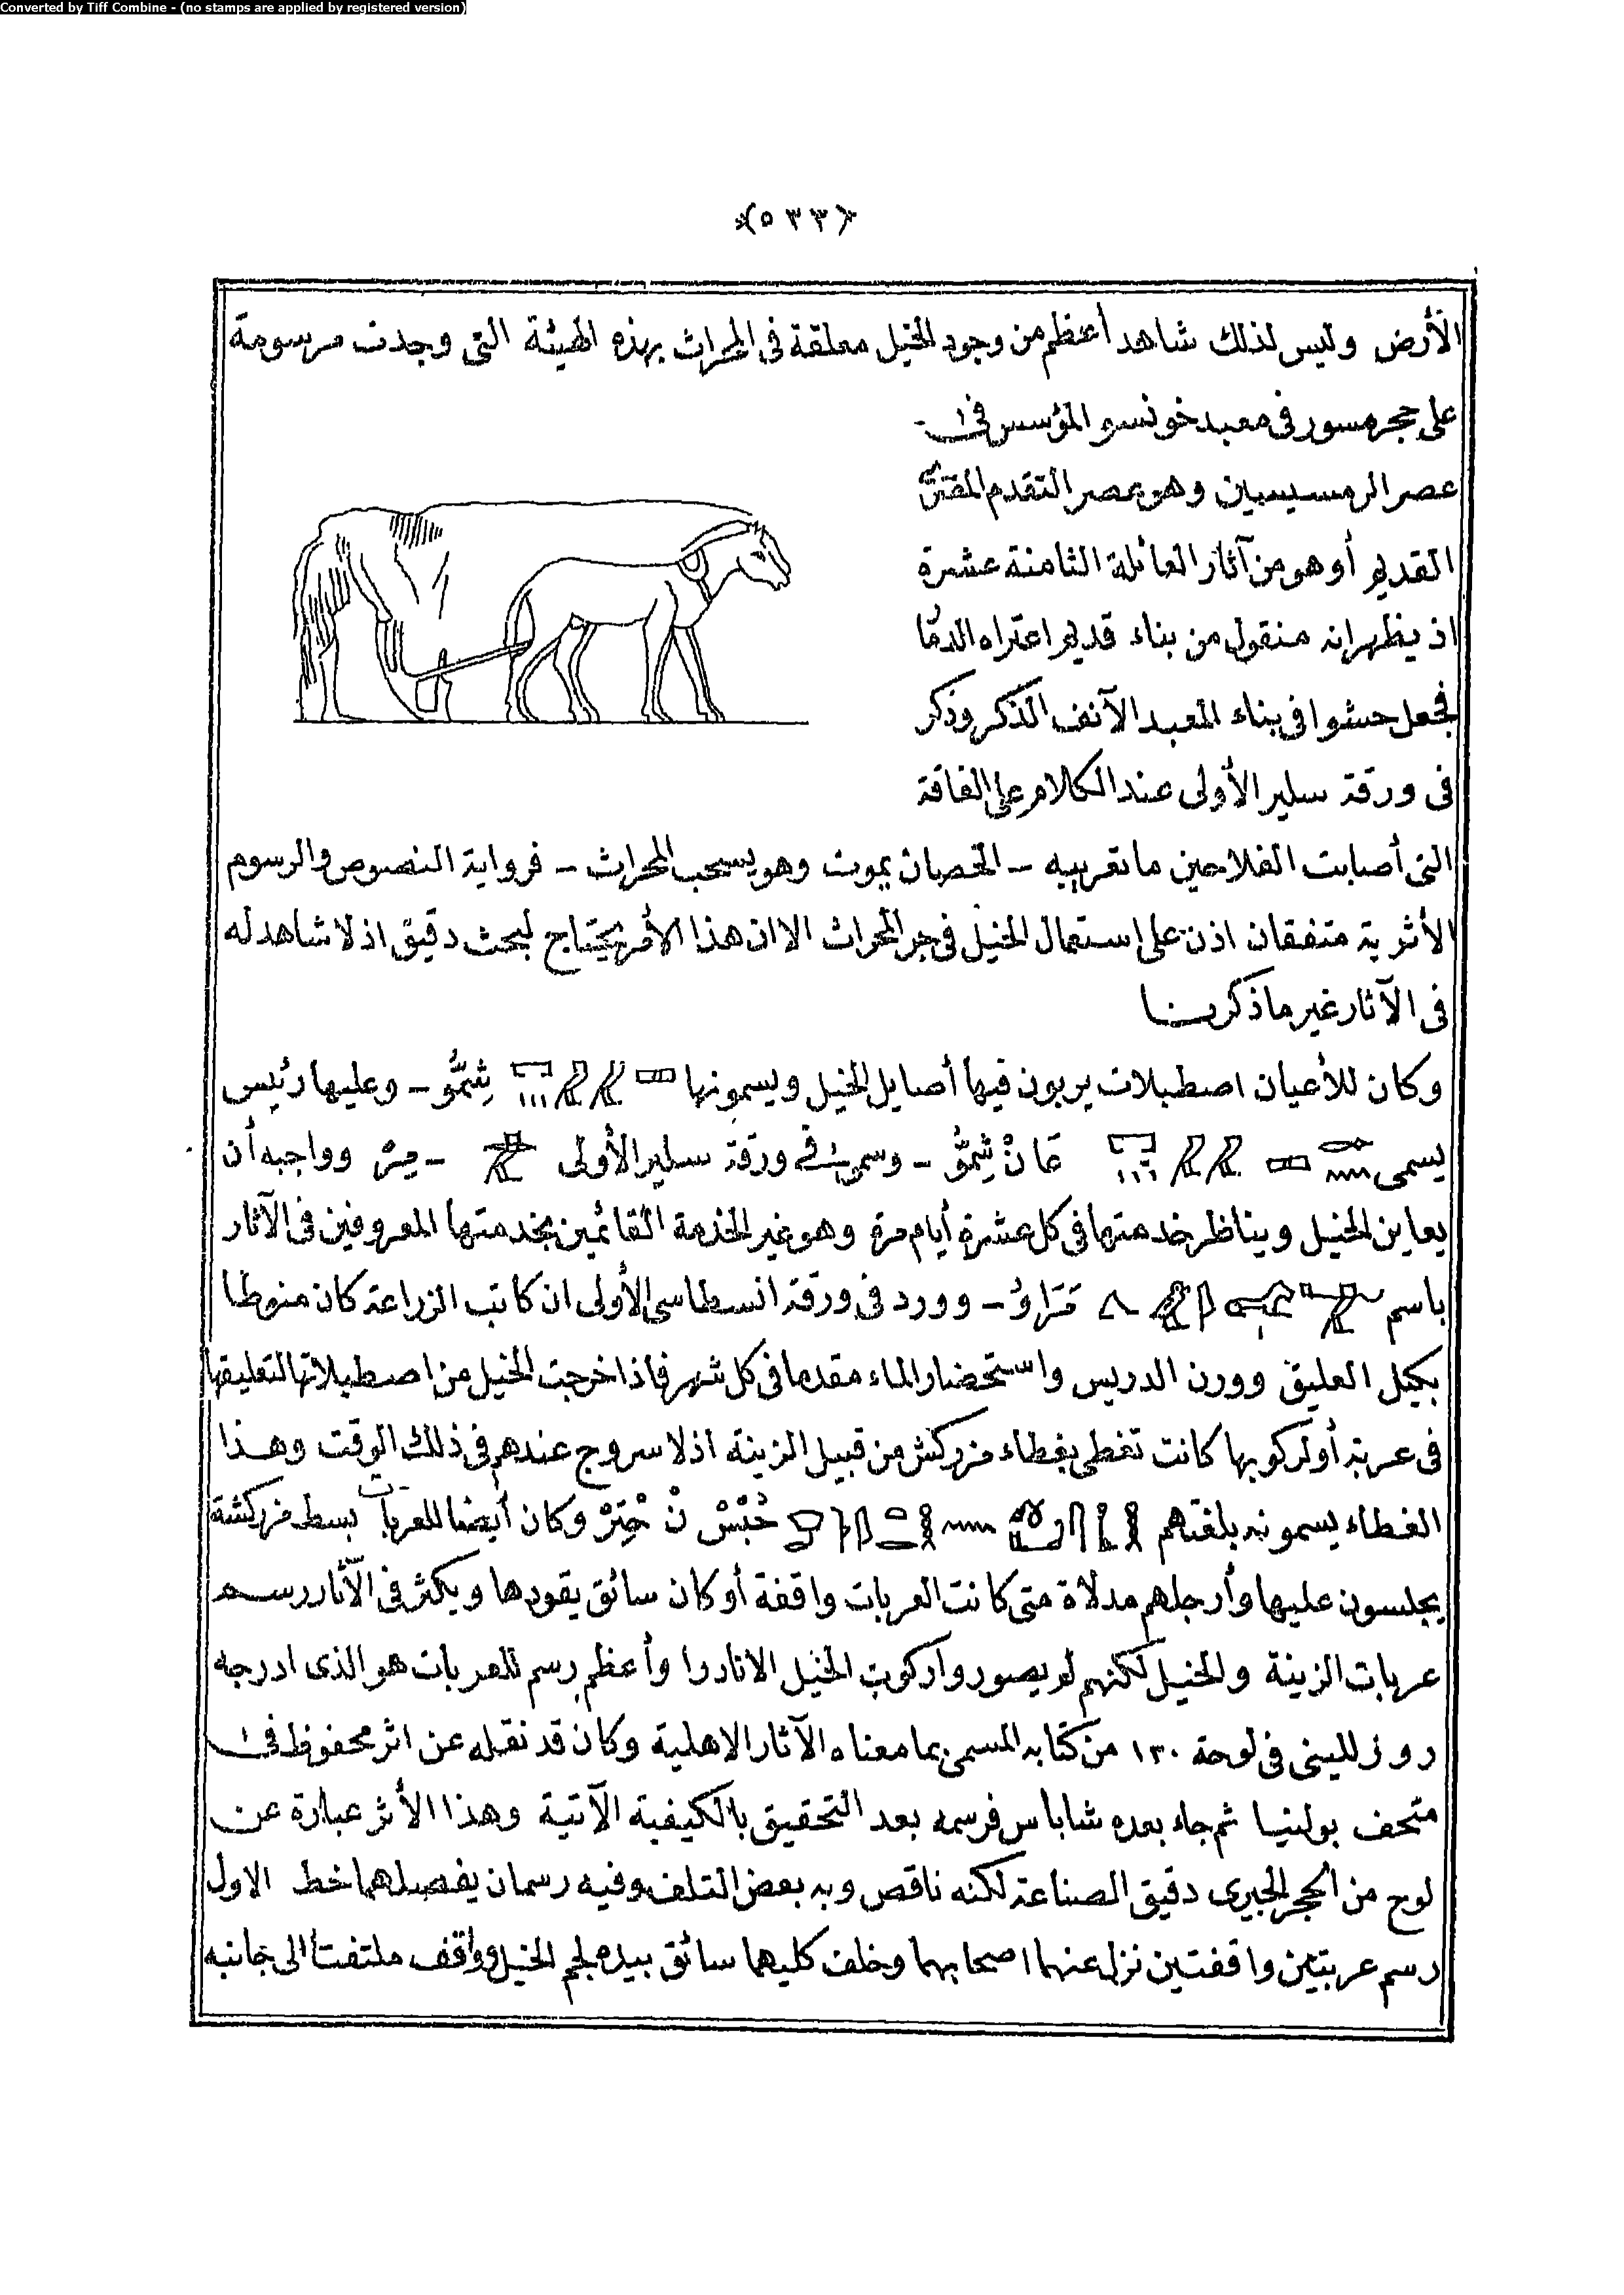 Converted by Tiff Combine - (no stamps are applied by registered version)
﴿٥٣٣﴾
الأرض وليس لذلك شاهد أعظم من وجود الخيل معلقة فى المحراث بهذه الهيئة التى وجدت مرسومة
على حجر مسور فى معبد خونسو المؤسس فى
عصر الرمسيسيين وهو عصر التقدم
القديم أو هو من آثار العائلة الثامنة عشرة
اذ يظهر انه منقول من بناء قديم اعتراه الدمار
فجعل حشوا فى بناء المعبد الآنف الذكر وذكر
فى ورقة سلير الأولى عند الكلام على الفاقة
التى أصابت الفلاحين ما تعريبه - الحصان يموت وهو يسحب المحراث - فرواية النصوص والرسوم
الأثرية متفقان اذن على استعمال الخيل فى جر المحراث الا ان هذا الأمر يحتاج لبحث دقيق اذ لا شاهد له
فى الآثار غير ما ذكرنا
وكان للأعيان اصطبلات يربون فيها أصايل الخيل ويسمونها شِمُّو - وعليها رئيس
يسمى عَانْ شِمُّو - وسمى فى ورقة سلير الأولى - مِرْ وواجبه أن
يعاين الخيل ويناظر خدمتها فى كل عشرة أيام مرة وهو غير الخدمة القائمين بخدمتها المعروفين فى الآثار
باسم مَرَاوُ - وورد فى ورقة انسطاسى الأولى ان كاتب الزراعة كان منوطا
بكيل العليق ووزن الدريس واستحضار الماء مقدما فى كل شهر فاذا خرجت الخيل من اصطبلاتها لتعليقها
فى عربة أو لركوبها كانت تغطى بغطاء مزركش من قبيل الزينة اذ لا سروج عندهم فى ذلك الوقت وهذا
الغطاء يسمونه بلغتهم حُبْسْ نْ حِتَرْ وكان أيضا للعربات بسط مزركشة
يجلسون عليها وأرجلهم مدلاة متى كانت العربات واقفة أو كان سائق يقودها ويكثر فى الآثار رسم
عربات الزينة والخيل لكنهم لم يصوروا ركوب الخيل الا نادرا وأعظم رسم للعربات هو الذى ادرجه
روزللينى فى لوحة ١٢٠ من كتابه المسمى بما معناه الآثار الاهلية وكان قد نقله عن اثر محفوظ فى
متحف بولنيا ثم جاء بعده شاباس فرسمه بعد التحقيق بالكيفية الآتية وهذا الأثر عبارة عن
لوح من الحجر الجيرى دقيق الصناعة لكنه ناقص وبه بعض التلف وفيه رسمان يفصلهما خط الاول
رسم عربتين واقفتين نزل عنهما اصحابهما وخلف كليهما سائق بيده لجم الخيل وواقف ملتفتا الى جانبه